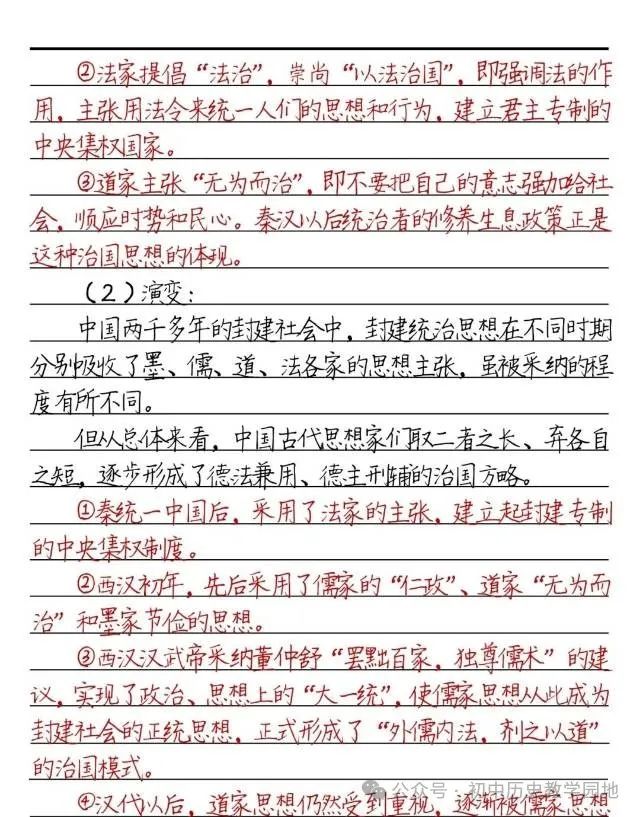 ②法家提倡“法治”，崇尚“以法治国”，即强调法的作
用，主张用法令来统一人们的思想和行为，建立君主专制的
中央集权国家。
③道家主张“无为而治”，即不要把自己的意志强加给社
会，顺应时势和民心。秦汉以后统治者的修养生息政策正是
这种治国思想的体现。
（2）演变：
中国两千多年的封建社会中，封建统治思想在不同时期
分别吸收了墨、儒、道、法各家的思想主张，虽被采纳的程
度有所不同。
但从总体来看，中国古代思想家们取二者之长、弃各自
之短，逐步形成了德法兼用、德主刑辅的治国方略。
①秦统一中国后，采用了法家的主张，建立起封建专制
的中央集权制度。
②西汉初年，先后采用了儒家的“仁政”、道家“无为而
治”和墨家节俭的思想。
③西汉汉武帝采纳董仲舒“罢黜百家，独尊儒术”的建
议，实现了政治、思想上的“大一统”，使儒家思想从此成为
封建社会的正统思想，正式形成了“外儒内法，剂之以道”
的治国模式。
④汉代以后，道家思想仍然受到重视，逐渐被儒家思想
公众号·初中历史教学园地